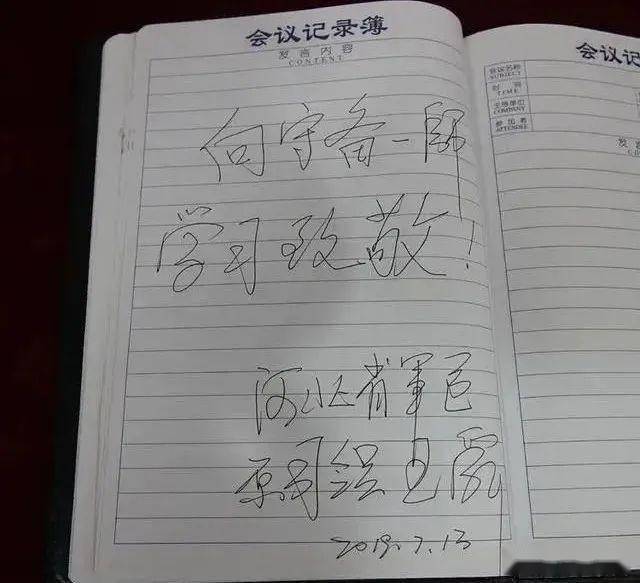 会议记录簿
发言内容
CONTENT
向守备一師
学习致敬!
河北省軍区
原司令员王
2019.7.13
会议记
会议名称
SUBJECT
时间
TIME
主持单位
COMPANY
参加者
ATTENDEE
发